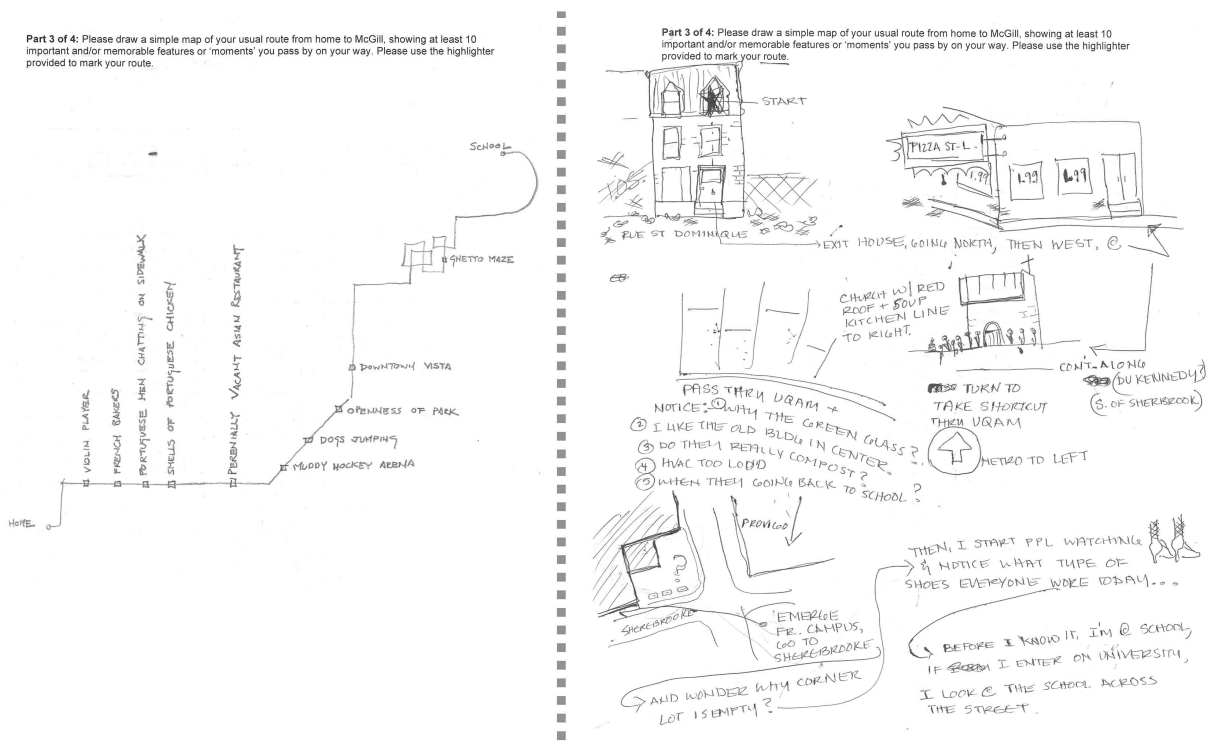 Part 3 of 4: Please draw a simple map of your usual route from home to McGill, showing at least 10
important and/or memorable features or 'moments' you pass by on your way. Please use the highlighter
provided to mark your route.
SCHOOL
GHETTO MAZE
DOWNTOWN VISTA
OPENNESS OF PARK
DOGS JUMPING
MUDDY HOCKEY ARENA
PERENIALLY VACANT ASIAN RESTAURANT
SMELLS OF PORTUGUESE CHICKEN
PORTUGUESE MEN CHATTING ON SIDEWALK
FRENCH BAKERS
VIOLIN PLAYER
HOME
Part 3 of 4: Please draw a simple map of your usual route from home to McGill, showing at least 10
important and/or memorable features or 'moments' you pass by on your way. Please use the highlighter
provided to mark your route.
START
PIZZA ST-L.
1.99
1.99
1.99
RUE ST DOMINIQUE
EXIT HOUSE, GOING NORTH, THEN WEST, @
CHURCH W/ RED
ROOF + SOUP
KITCHEN LINE
TO RIGHT.
CON'T ALONG
(DU KENNEDY?)
(S. OF SHERIBROOK)
TURN TO
TAKE SHORTCUT
THRU UQAM
METRO TO LEFT
PASS THRU UQAM +
NOTICE: ① WHY THE GREEN GLASS?
② I LIKE THE OLD BLDG IN CENTER.
③ DO THEY REALLY COMPOST?
④ HVAC TOO LOUD
⑤ WHEN THEY GOING BACK TO SCHOOL?
PROVIGO
SHEREBROOKE
EMERGE
FR. CAMPUS,
GO TO
SHEREBROOKE,
AND WONDER WHY CORNER
LOT IS EMPTY?
THEN, I START PPL WATCHING
& NOTICE WHAT TYPE OF
SHOES EVERYONE WORE TODAY...
BEFORE I KNOW IT, I'M @ SCHOOL,
IF I ENTER ON UNIVERSITY,
I LOOK @ THE SCHOOL ACROSS
THE STREET.